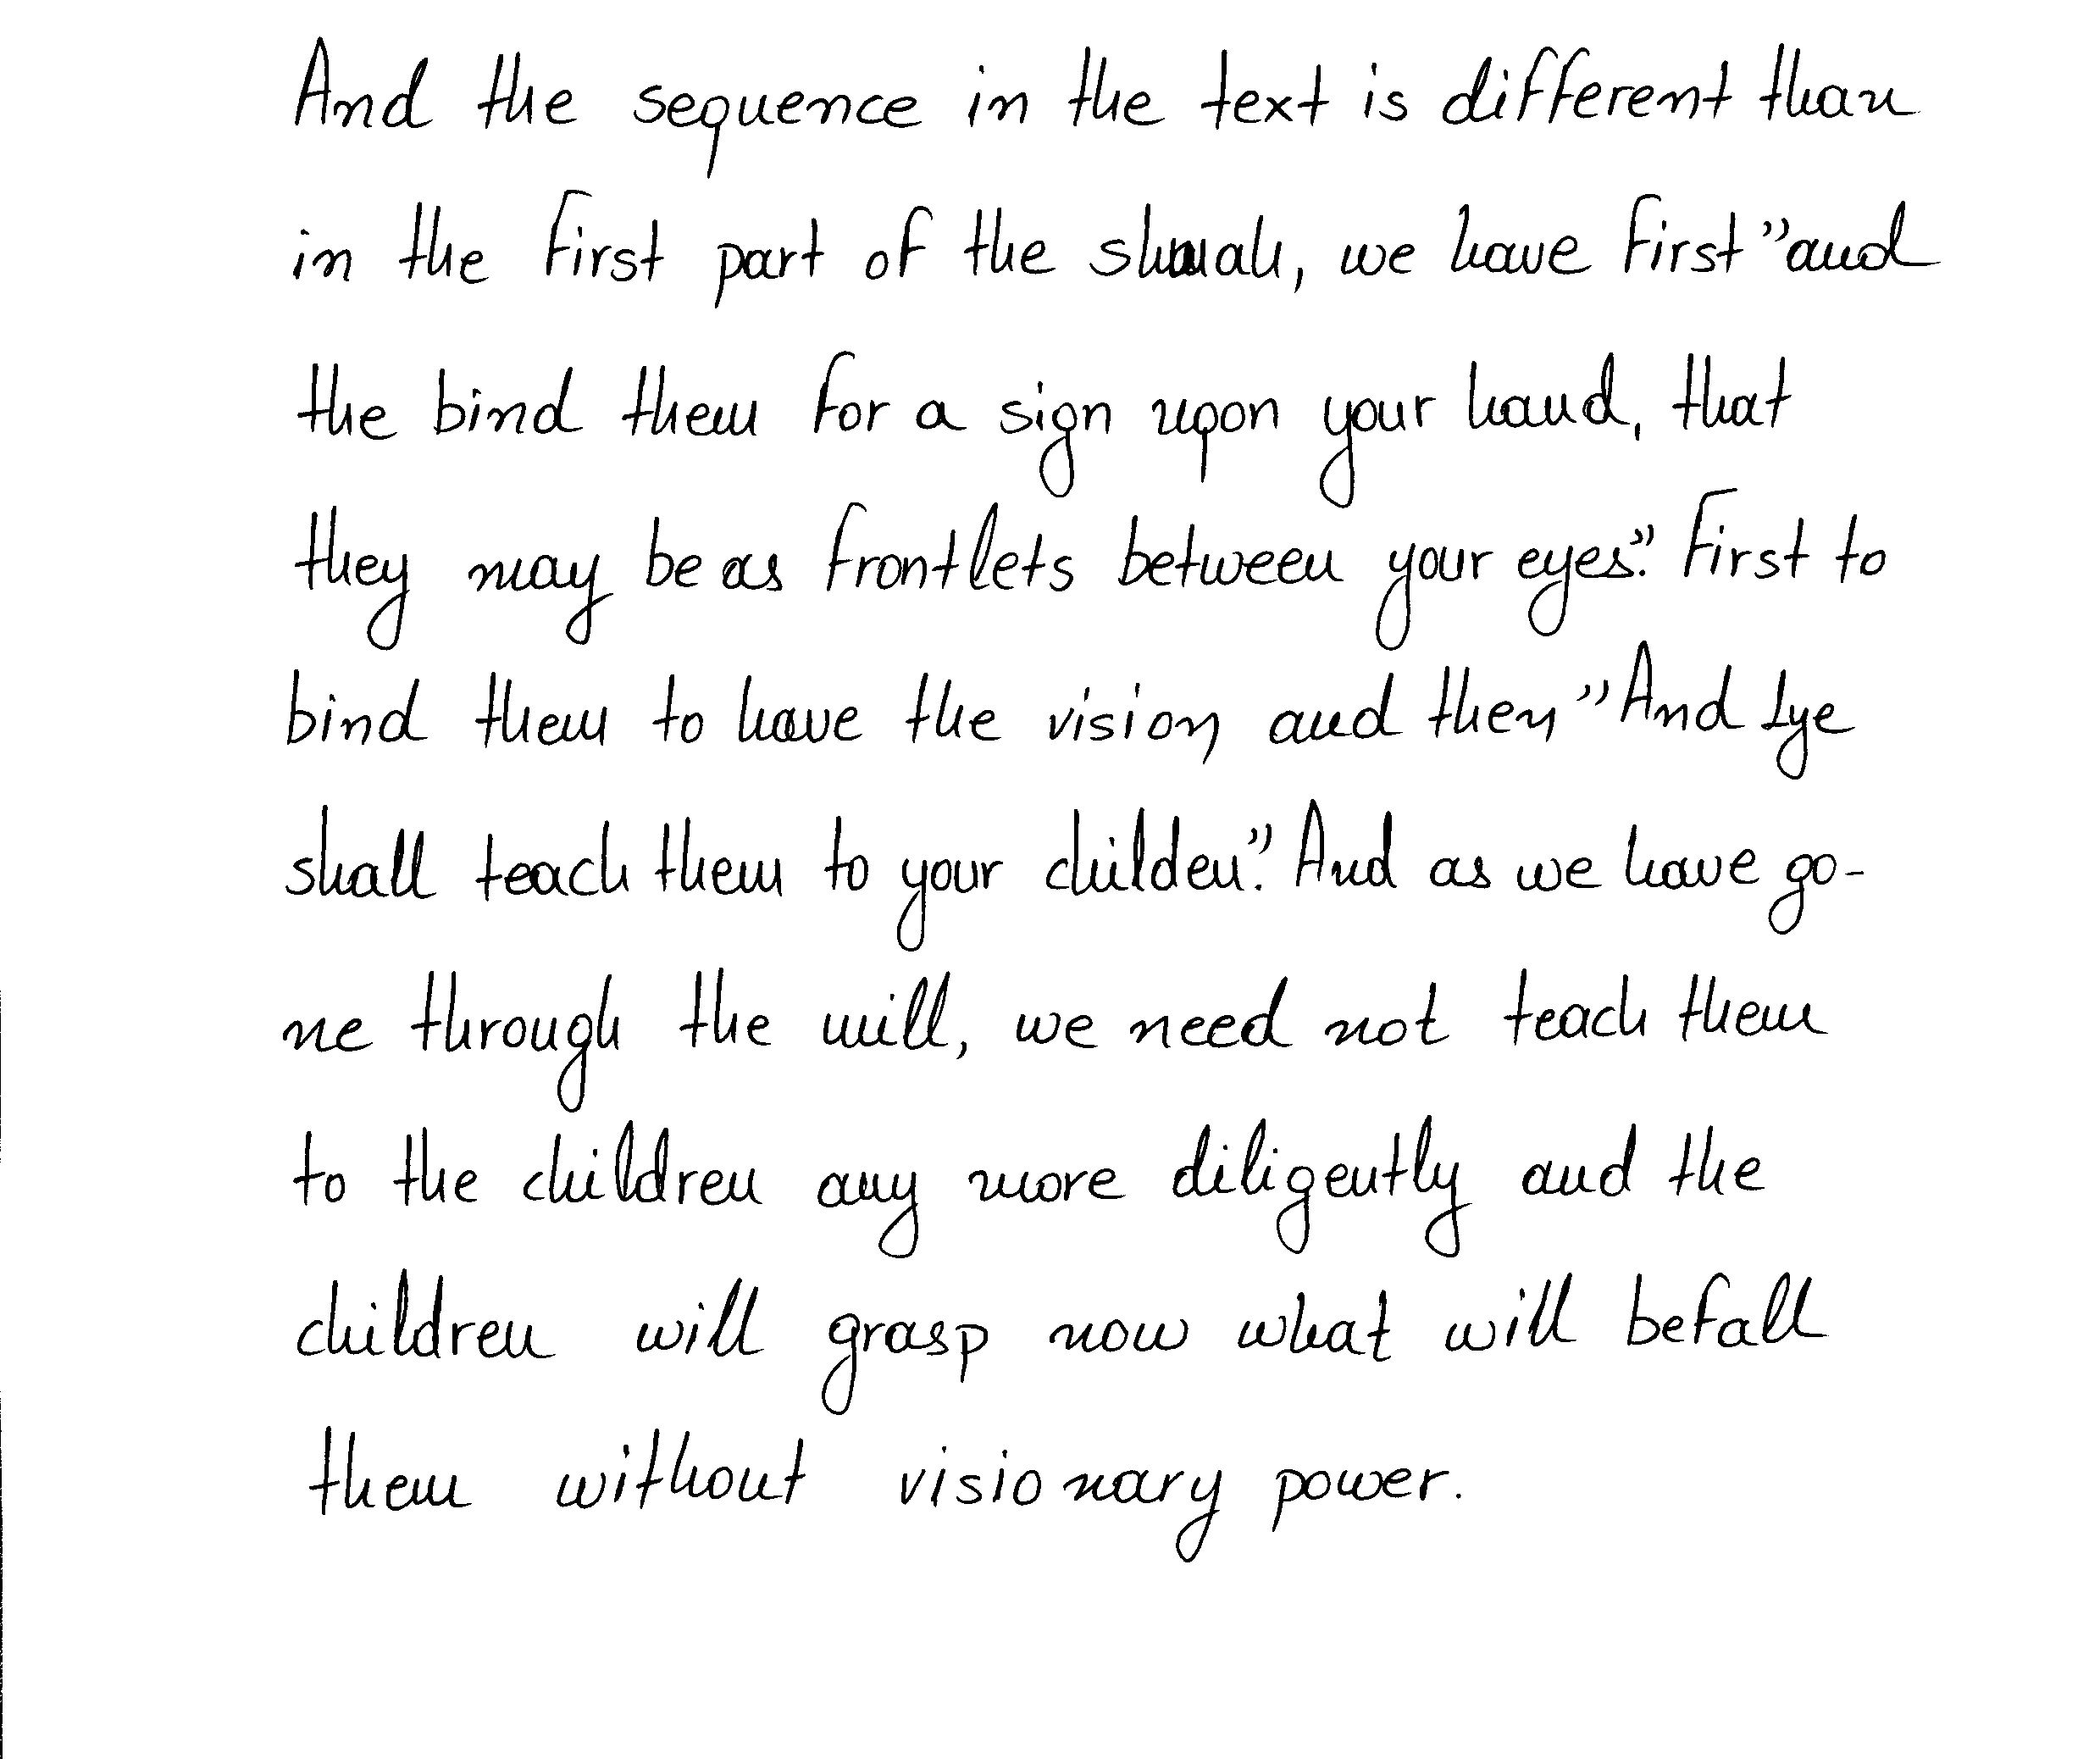 And the sequence in the text is different than
in the first part of the shmah, we have first "and
the bind them for a sign upon your hand, that
they may be as frontlets between your eyes". First to
bind them to have the vision and then "And
shall teach them to your childen". And as we have go-
ne through the mill, we need not teach them
to the children any more diligently and the
children will grasp now what will befall
them without visionary power.